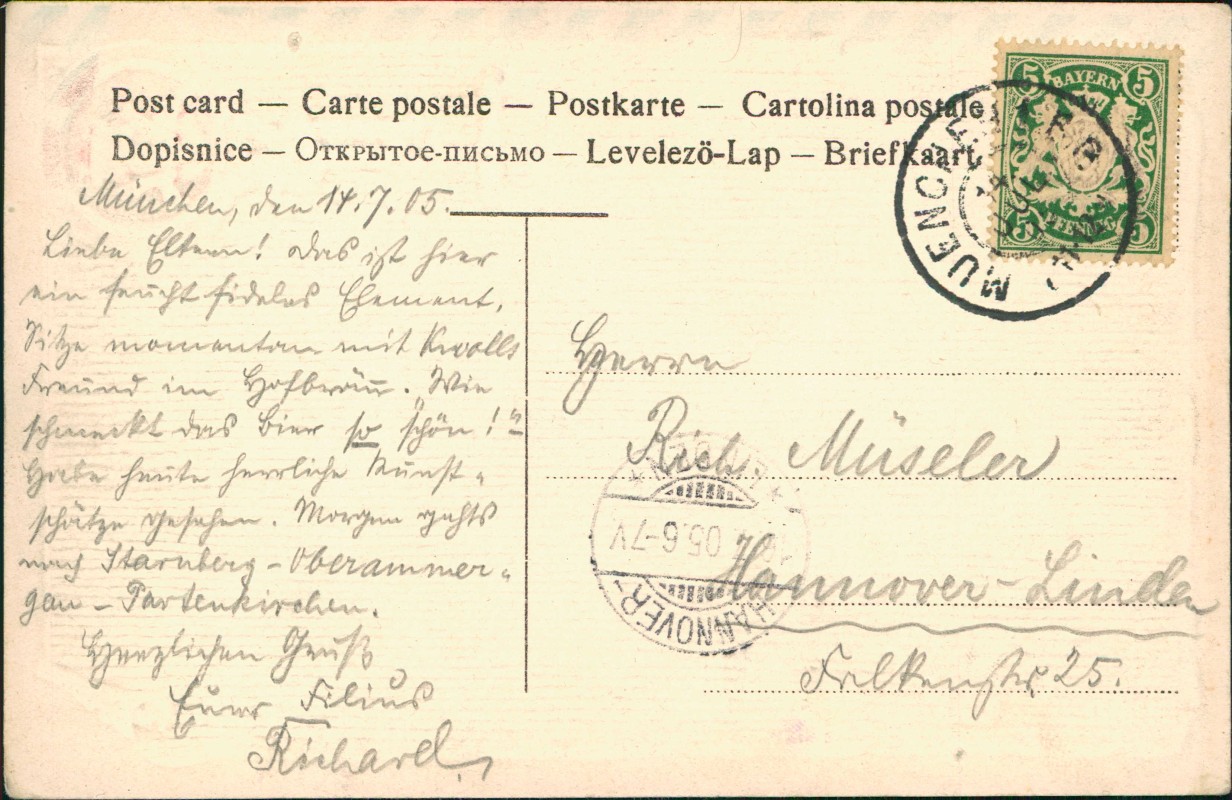 Post card — Carte postale — Postkarte — Cartolina postale
Dopisnice — Открытое-письмо — Levelezö-Lap — Briefkaart
5 BAYERN 5
5 PFENNIG 5
MUENCHEN
München, den 14.7.05.
Liebe Eltern! Das ist hier
ein feucht fideles Element.
Sitze momentan mit Knolls
Freund im Hofbräu. „Wie
schmeckt das Bier so schön!“
Habe heute herrliche Kunst-
schätze gesehen. Morgen gehts
nach Starnberg - Oberammer-
gau - Partenkirchen.
Herzlichen Gruß
Euer Filius
Richard.
Herrn
Rich. Müseler
Hannover-Linden
Falkenstr. 25.
05.6-7V
HANNOVER-